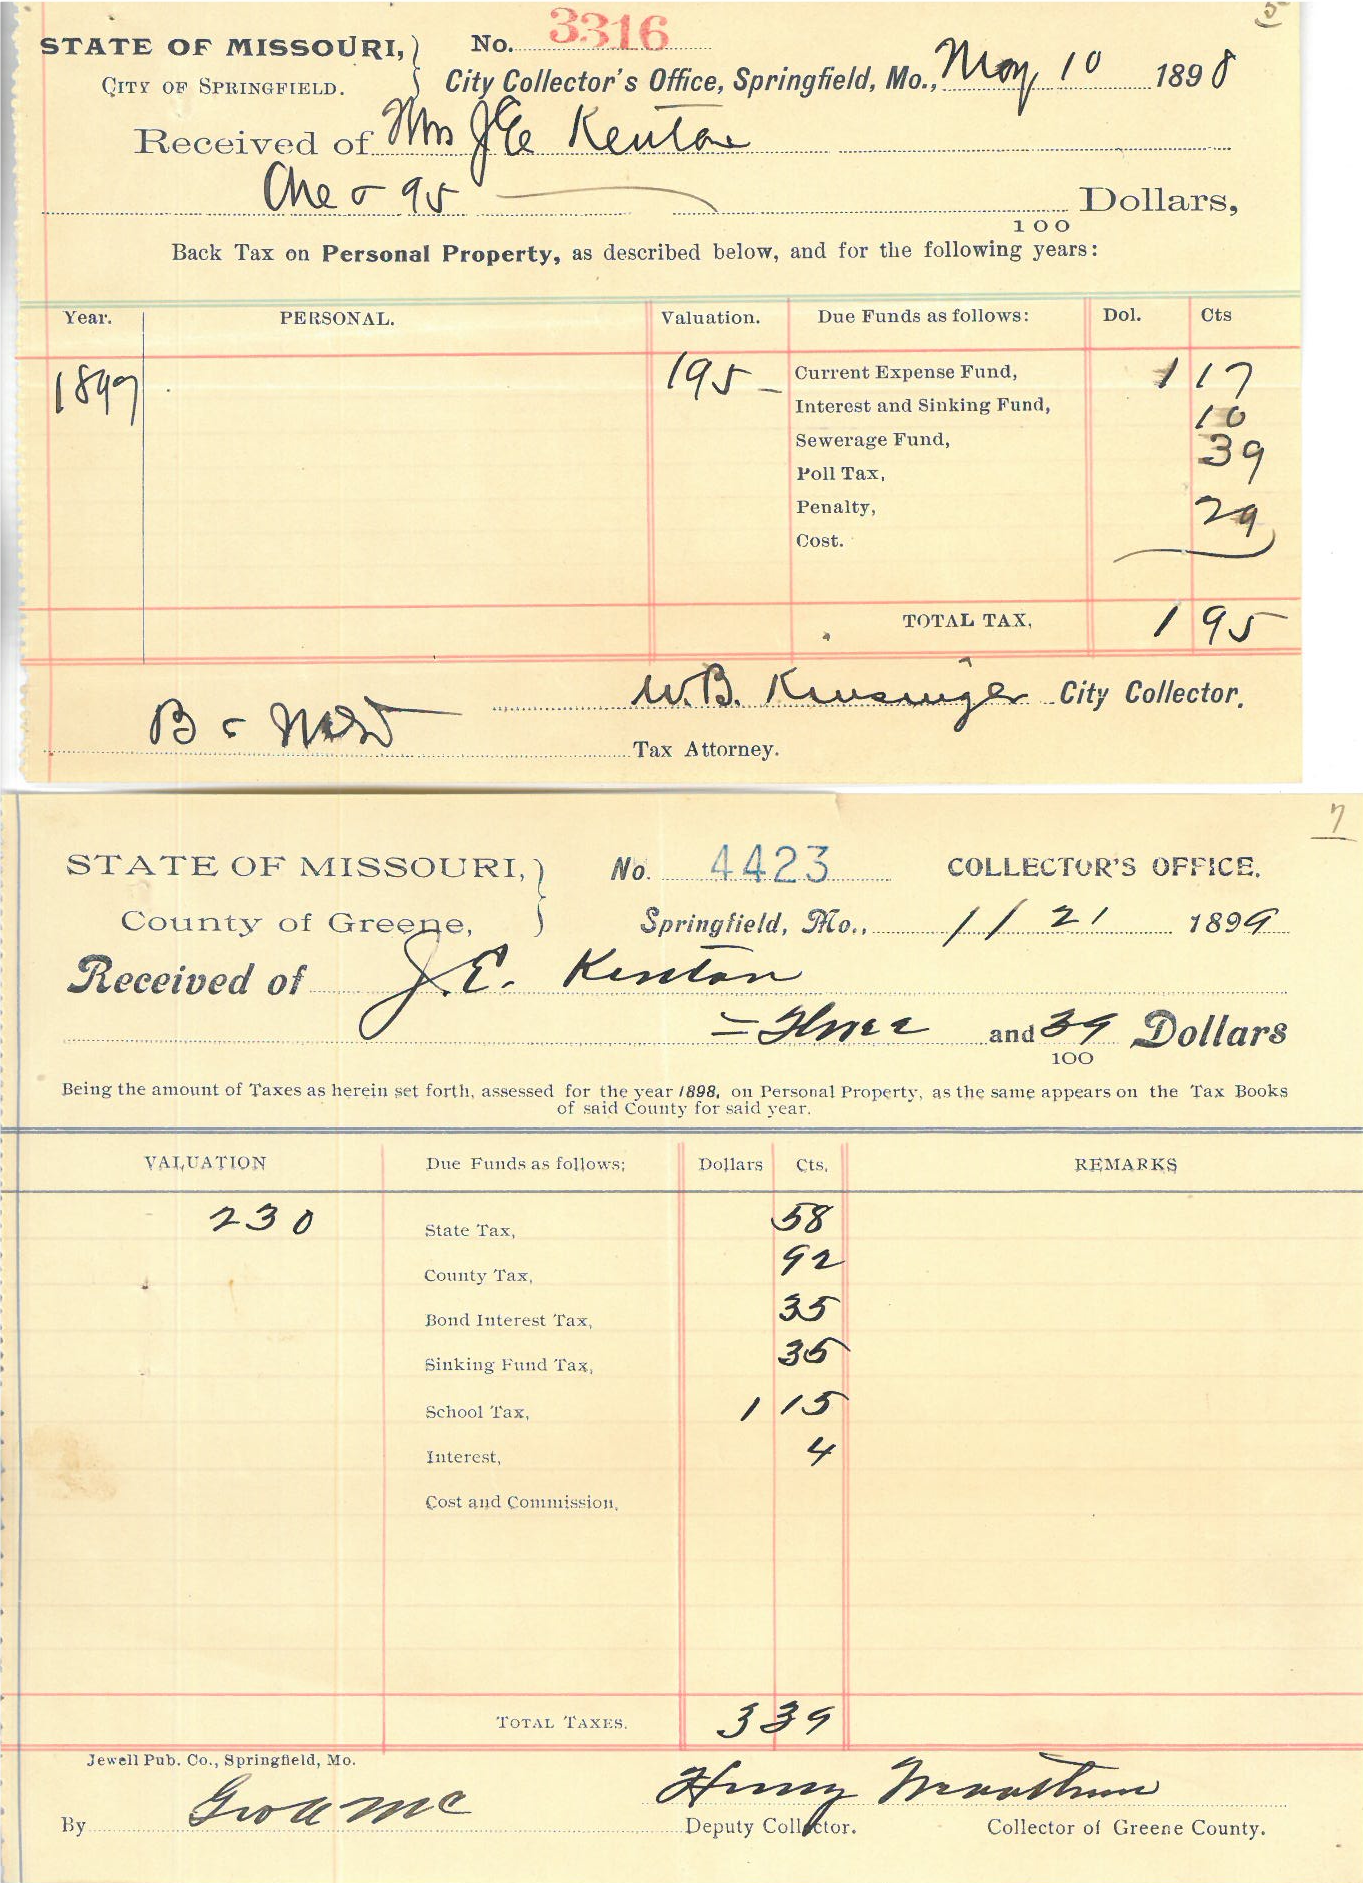 5
STATE OF MISSOURI, No. 3316
CITY OF SPRINGFIELD. City Collector's Office, Springfield, Mo., May 10 1898
Received of Mrs J E Kenton
One & 95 Dollars,
100
Back Tax on Personal Property, as described below, and for the following years:
Year. PERSONAL. Valuation. Due Funds as follows: Dol. Cts
1897 195 Current Expense Fund, 1 17
Interest and Sinking Fund, 10
Sewerage Fund, 39
Poll Tax,
Penalty, 29
Cost.
TOTAL TAX, 1 95
W.B. Kinsinger City Collector.
B & Tax Attorney.
7
STATE OF MISSOURI, No. 4423 COLLECTOR'S OFFICE.
County of Greene, Springfield, Mo., 11 21 1899
Received of J. E. Kenton
= Three and 39 Dollars
100
Being the amount of Taxes as herein set forth, assessed for the year 1898, on Personal Property, as the same appears on the Tax Books
of said County for said year.
VALUATION Due Funds as follows; Dollars Cts. REMARKS
230 State Tax, 58
County Tax, 92
Bond Interest Tax, 35
Sinking Fund Tax, 35
School Tax, 1 15
Interest, 4
Cost and Commission,
TOTAL TAXES. 3 39
Jewell Pub. Co., Springfield, Mo.
Henry
By Geo A Mc Deputy Collector. Collector of Greene County.